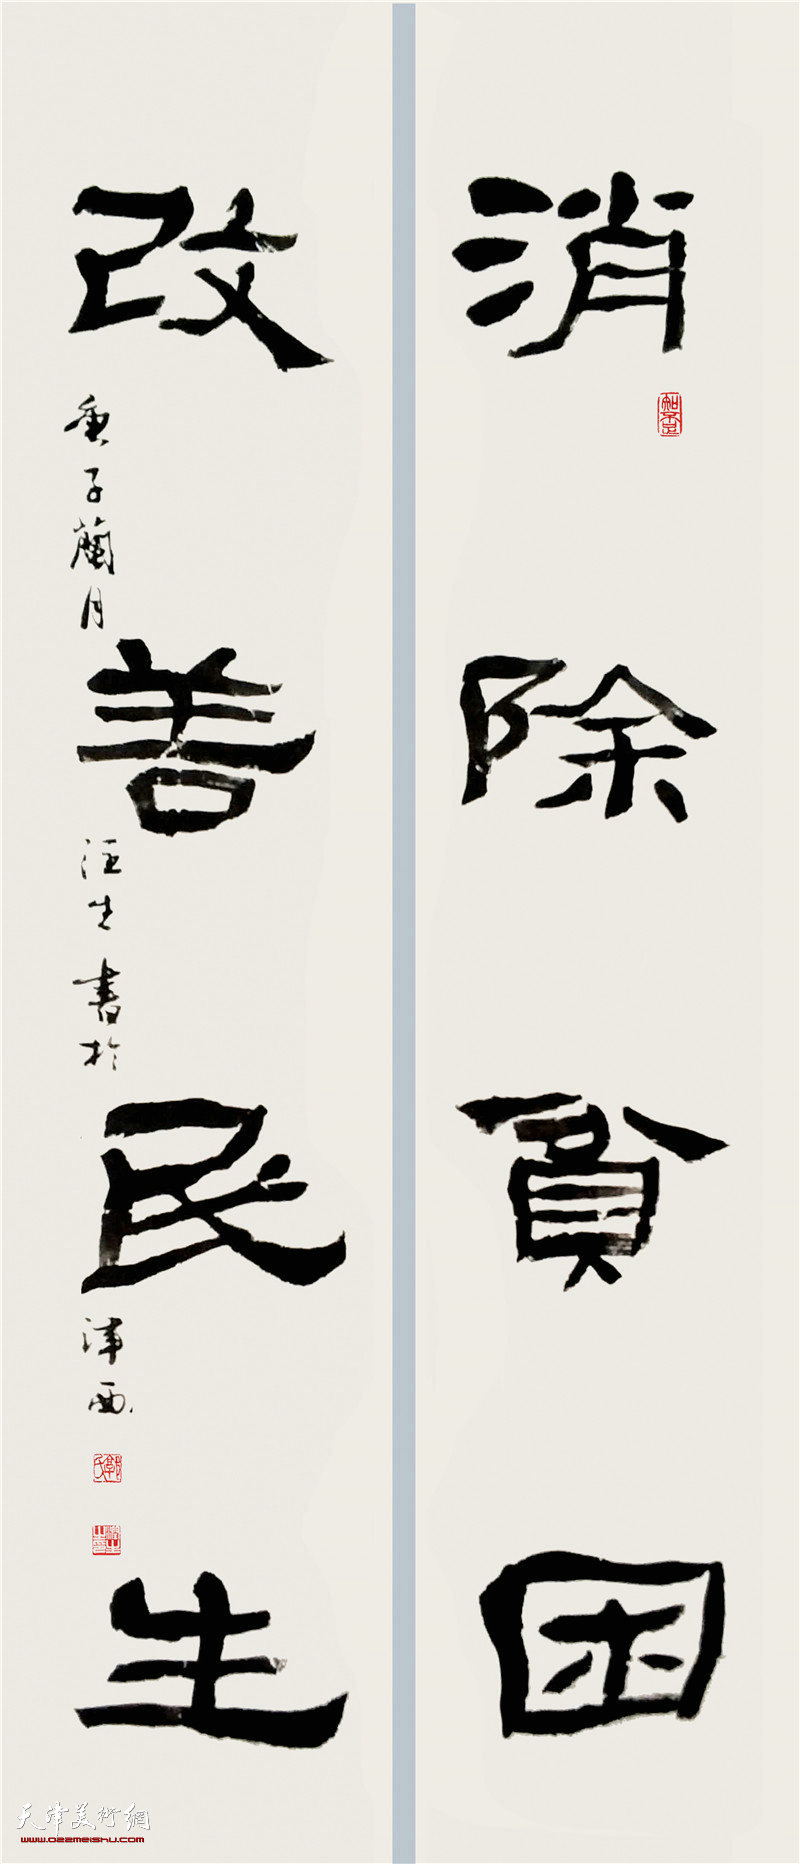 消除貧困
改善民生
庚子蘭月
恒生書於
津西
知不足
天津美術網
www.022meishu.com